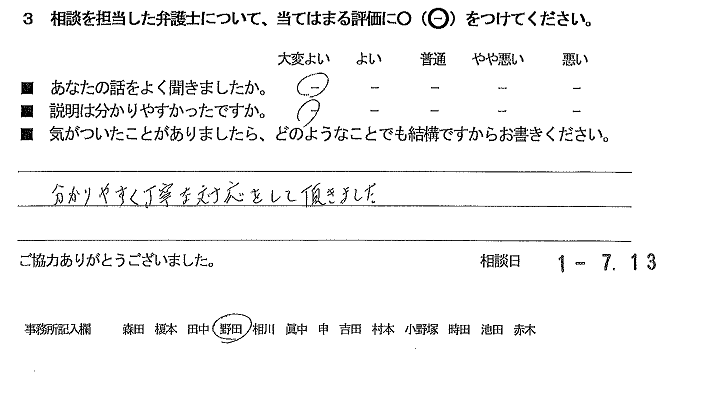 3 相談を担当した弁護士について、当てはまる評価に○(⊖)をつけてください。
大変よい よい 普通 やや悪い 悪い
■ あなたの話をよく聞きましたか。 － － － － －
■ 説明は分かりやすかったですか。 － － － － －
■ 気がついたことがありましたら、どのようなことでも結構ですからお書きください。
分かりやすく丁寧な対応をして頂きました
ご協力ありがとうございました。 相談日 1－7.13
事務所記入欄 森田 榎本 田中 野田 相川 眞中 申 吉田 村本 小野塚 時田 池田 赤木